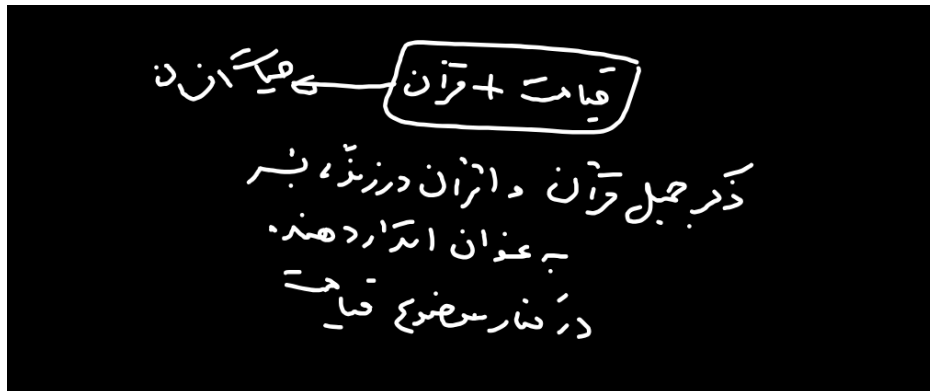 قیامت + قرآن ← حیات انسان
ذکر جمیل قرآن و اثر آن در زندگی بشر
به عنوان انذار دهنده
در کنار موضوع قیامت